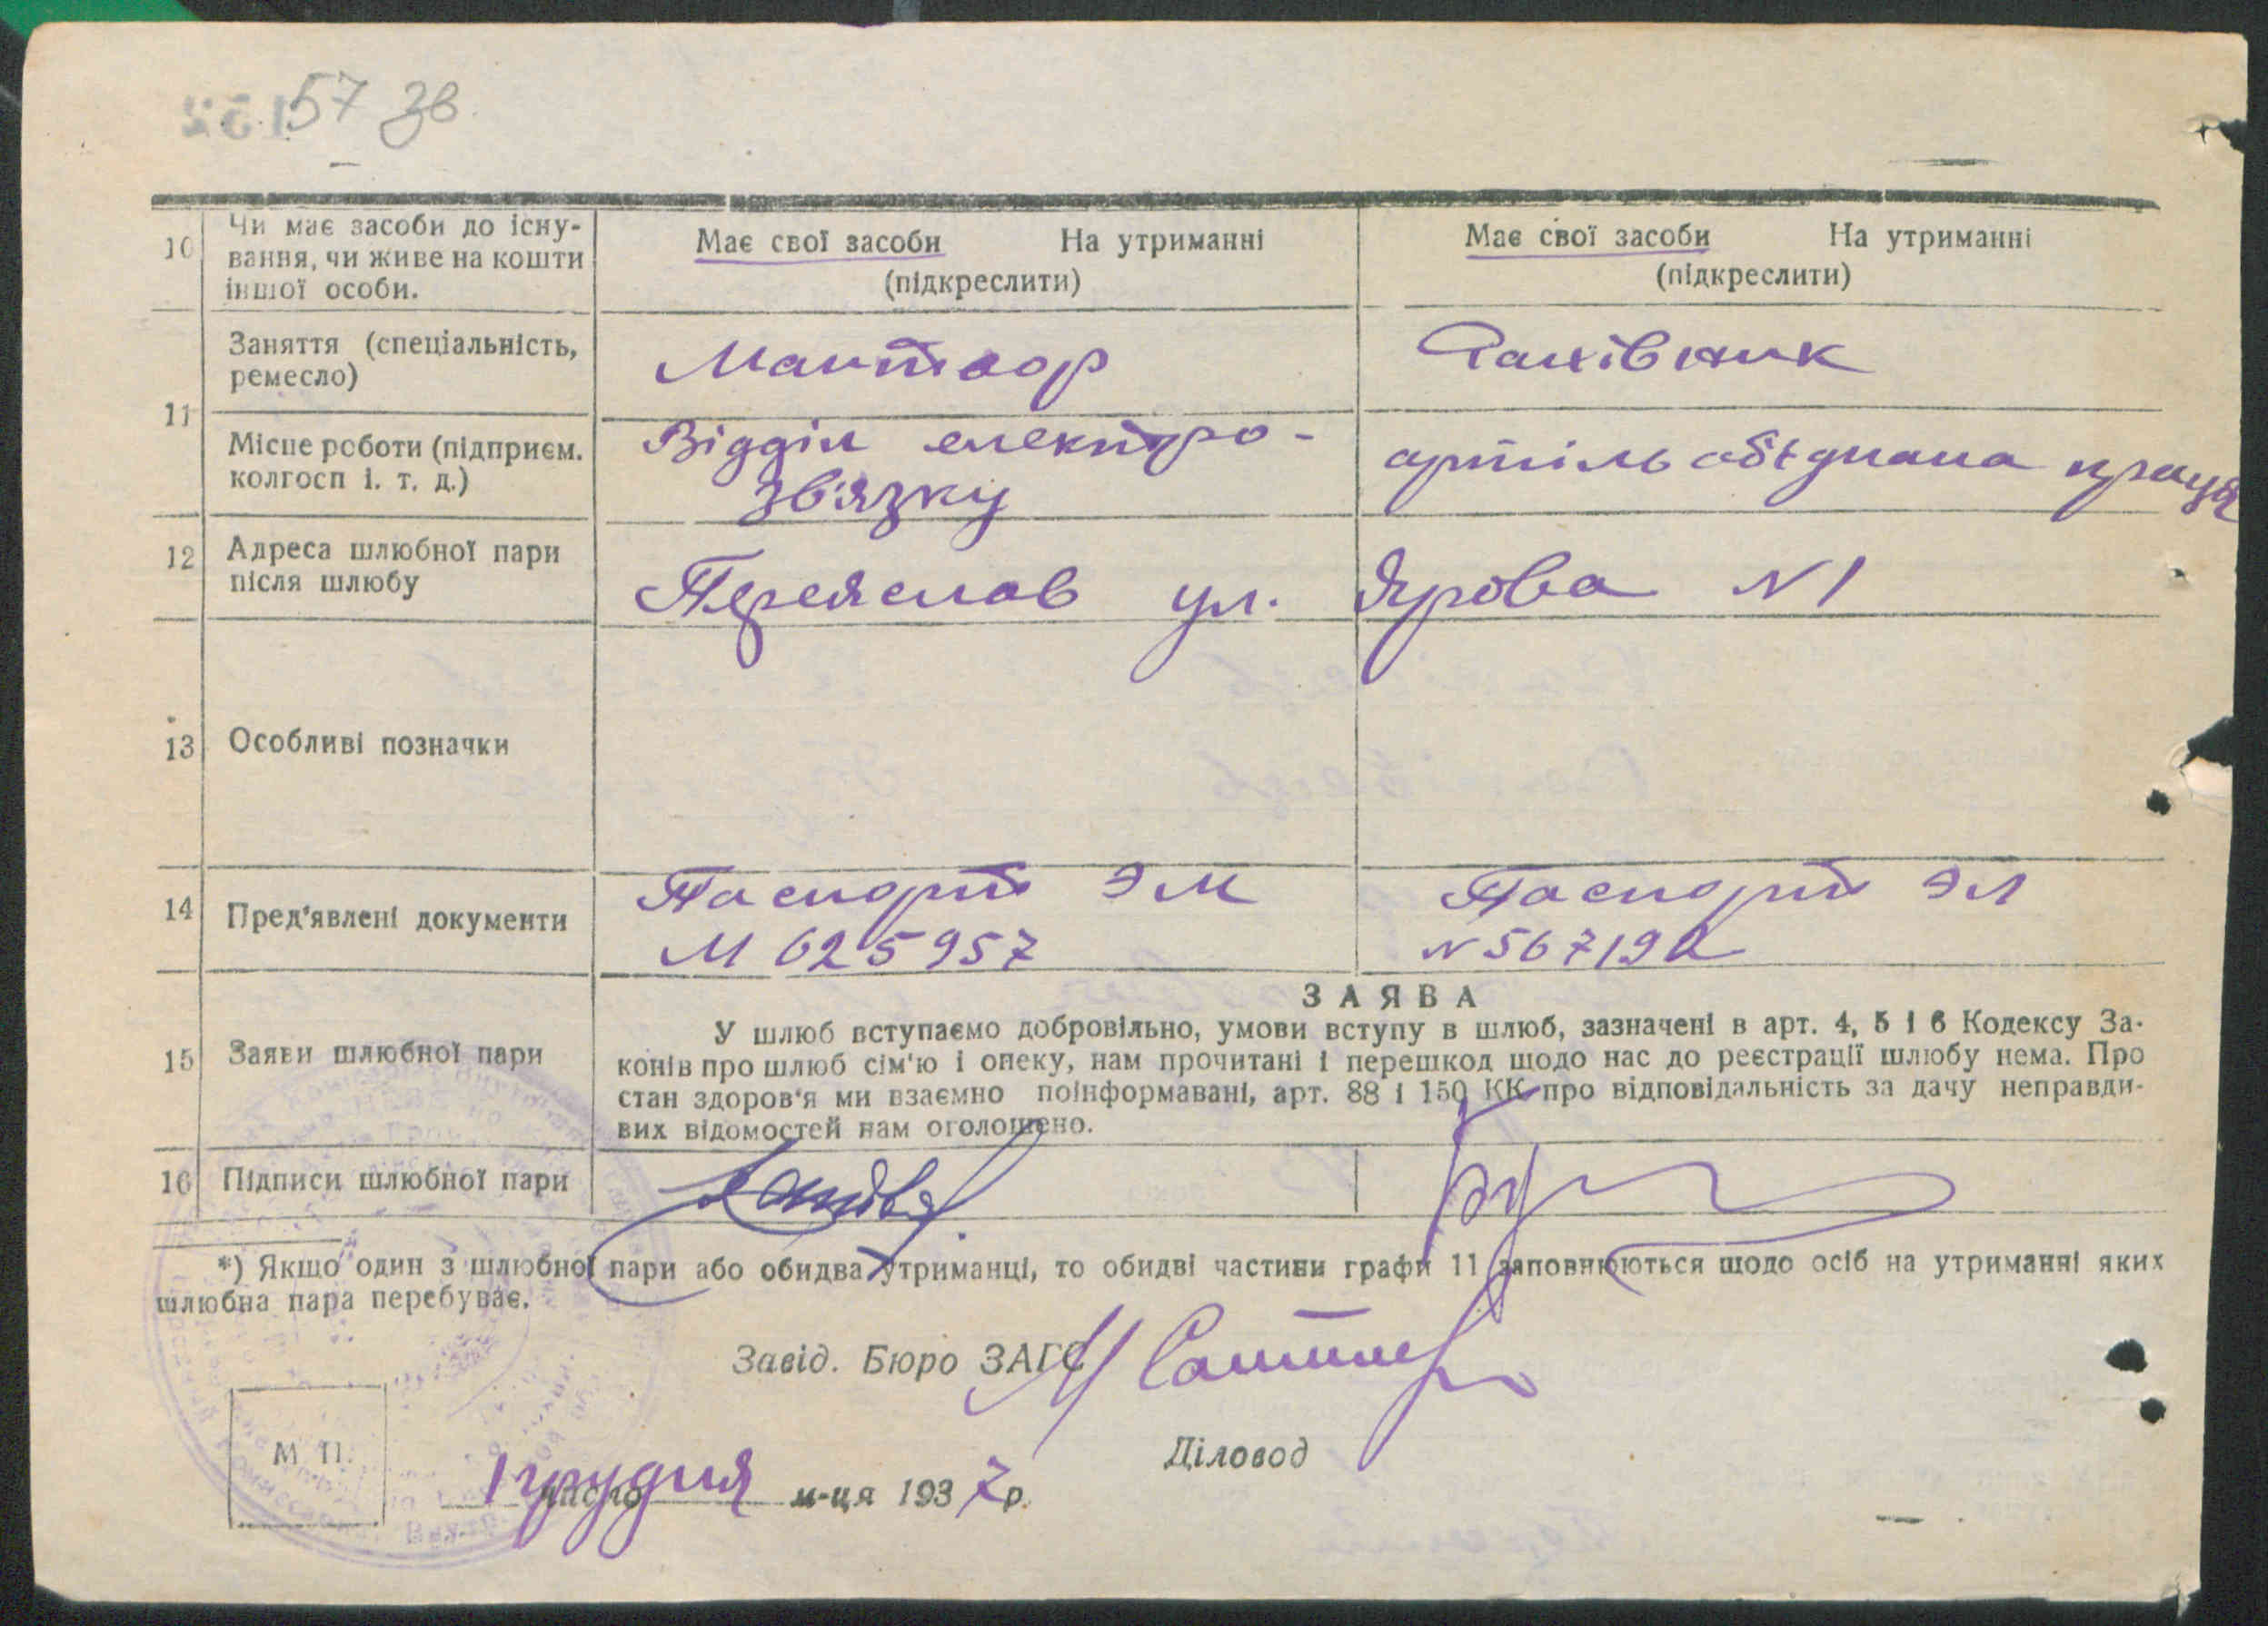 57 зв
10 Чи має засоби до існу-
вання, чи живе на кошти
іншої особи.
Має свої засоби На утриманні
(підкреслити)
Має свої засоби На утриманні
(підкреслити)
11 Заняття (спеціальність,
ремесло)
Мантьор
Місце роботи (підприєм.
колгосп і. т. д.)
Відділ електро-
зв'язку
артіль обєднана праця
12 Адреса шлюбної пари
після шлюбу
Переяслав ул. Ярова №1
13 Особливі позначки
14 Пред'явлені документи
Паспорт ЭМ
№ 625957
Паспорт ЭЛ
№ 567192
15 Заяви шлюбної пари
ЗАЯВА
У шлюб вступаємо добровільно, умови вступу в шлюб, зазначені в арт. 4, 5 і 6 Кодексу За-
конів про шлюб сім'ю і опеку, нам прочитані і перешкод щодо нас до реєстрації шлюбу нема. Про
стан здоров'я ми взаємно поінформавані, арт. 88 і 150 КК про відповідальність за дачу неправди-
вих відомостей нам оголошено.
16 Підписи шлюбної пари
*) Якщо один з шлюбної пари або обидва утриманці, то обидві частини графи 11 заповнюються щодо осіб на утриманні яких
шлюбна пара перебуває.
Завід. Бюро ЗАГС
Діловод
М П.
1 грудня число м-ця 1937 р.